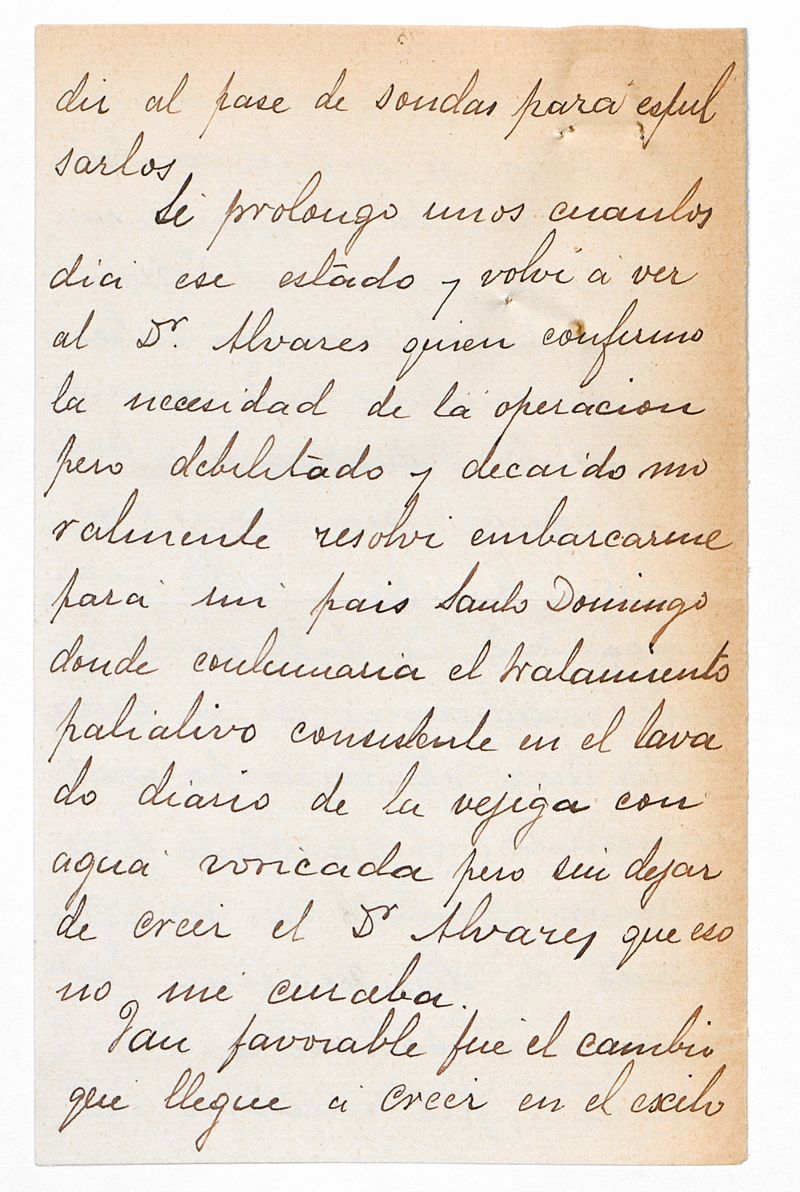 dir al pase de sondas para espul
sarlos
Se prolongo unos cuantos
dia ese estado y volvi a ver
al Dr. Alvares quien confirmo
la necesidad de la operacion
pero debilitado y decaido mo
ralmente resolvi embarcarme
para mi pais Santo Domingo
donde continuaria el tratamiento
paliativo consistente en el lava
do diario de la vejiga con
agua voricada pero sin dejar
de creer el Dr Alvares que eso
no me curaba.
Tan favorable fue el cambio
que llegue a creer en el exito